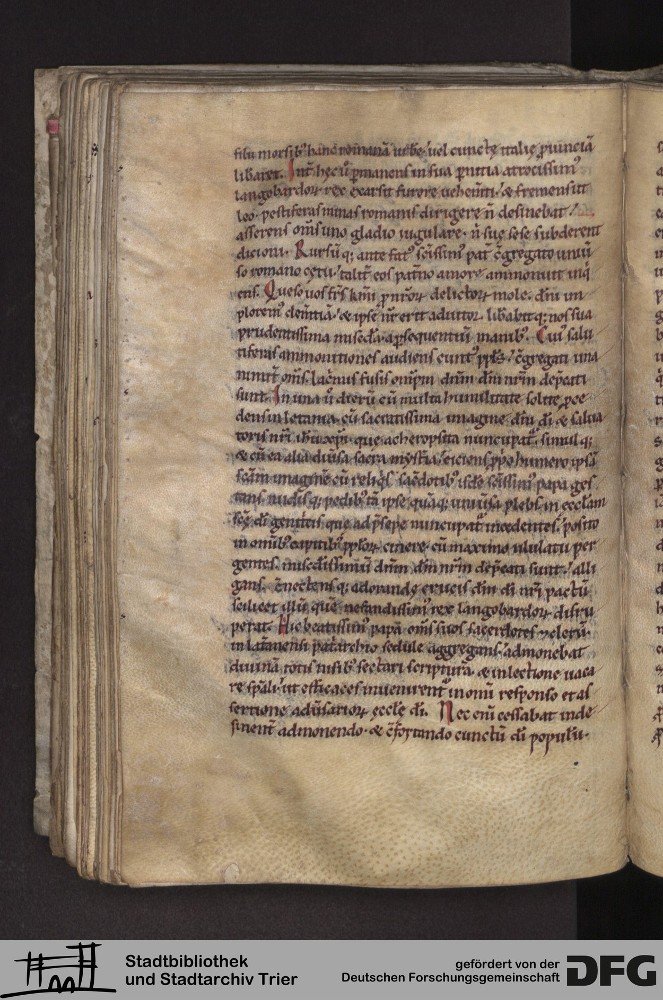 filii morsib; hanc romanā urbē uel cunctę italię puinciā
libaret. Int hęc u pmanens in sua pnitia atrocissim;
langobardoꝝ rex exarsit furore uehemti. & fremens ut
leo. pestiferas minas romanis dirigere n desinebat.
asserens oms uno gladio iugulare. n suę sese subderent
dicioni. Rursū q; ante fat; scissim; pat cgregato uniu
so romano cętu. talit eos patno amore ammonuit inq
ens. Queso uos frs kmi pnroꝝ delictoꝝ mole. dni im
plorem; clemtiā. & ipse nr erit adiutor. libabit q; nos sua
prudentissima miscdia apsequentiū manib;. Cui; salu
tiferis ammonitiones audiens cunct; ppls. cgregati una
nimit oms. lacrimis fusis omipm dnm dm nrm depcati
sunt. In una u dierū cū multa humilitate solite pce
dens in letania. cū sacratissima imagine dni di & salua
toris nri ihu xpi. que acheropsita nuncupat. simul q;
& cū ea alia diuisa sacra mystia eiciens. pprio humero ipsā
scam imaginē cū reliqs sacdotib; isde scissim; papa ges
tans. nudis q; pedib; tā ipse quāq; uniusa plebs. in ecclam
scę di genitricis que ad psepe nuncupat incedentes. posito
in omib; capitib; pploꝝ cinere. cū maximo ululatu per
gentes. miscdissimū dnm dm nrm depcati sunt. alli
gans. cnectens q; adorandę crucis dni di nri pactū
scilicet illū quē nefandissim; rex langobardoꝝ disru
perat. Hic beatissim; papa oms suos sacerdotes & clerū.
in lateransi patarchio sedule aggregans. admonebat
diuinā totis nisib; sectari scripturā. & in lectione uaca
re spali. ut efficaces inuenirent in omi responso et as
sertione adusarioꝝ ęccle di. Nec eni cessabat inde
sinent admonendo. & cfortando cunctū di populū.
Stadtbibliothek
und Stadtarchiv Trier
gefördert von der
Deutschen Forschungsgemeinschaft
DFG